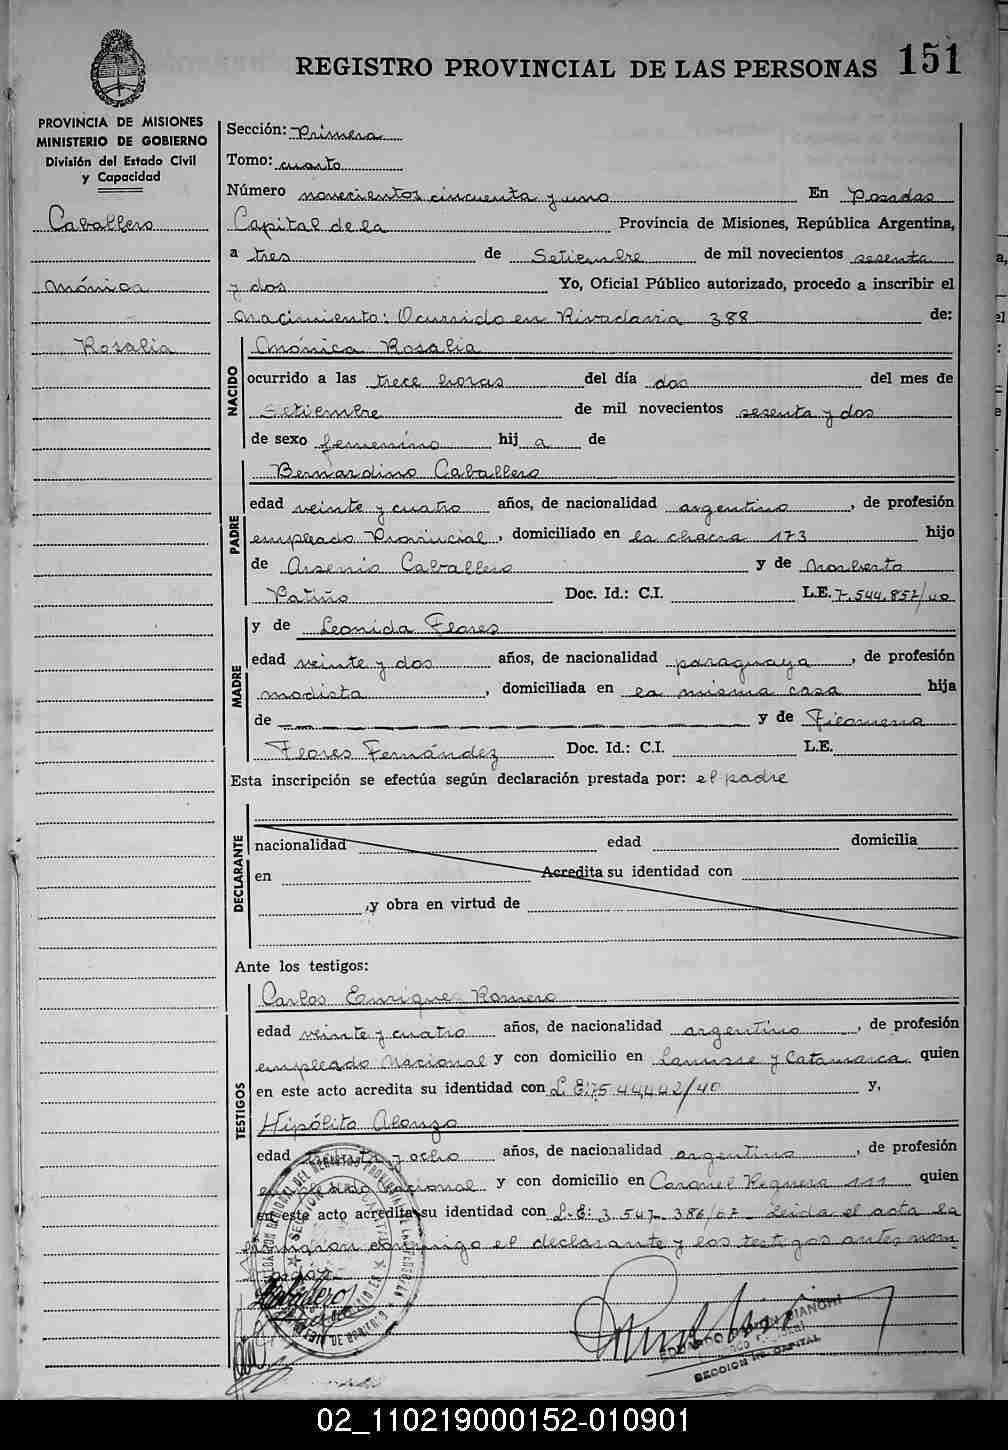 REGISTRO PROVINCIAL DE LAS PERSONAS 151
PROVINCIA DE MISIONES
MINISTERIO DE GOBIERNO
División del Estado Civil
y Capacidad
Caballero
Mónica
Rosalia
Sección: Primera
Tomo: cuarto
Número novecientos cincuenta y uno En Posadas
Capital de la Provincia de Misiones, República Argentina,
a tres de Setiembre de mil novecientos sesenta
y dos Yo, Oficial Público autorizado, procedo a inscribir el
nacimiento: Ocurrido en Rivadavia 388 de:
NACIDO
Mónica Rosalia
ocurrido a las trece horas del día dos del mes de
Setiembre de mil novecientos sesenta y dos
de sexo femenino hij a de
PADRE
Bernardino Caballero
edad veinte y cuatro años, de nacionalidad argentino, de profesión
empleado Provincial, domiciliado en la chacra 173 hijo
de Arsenio Caballero y de Norberta
Patiño Doc. Id.: C.I. L.E. 7.544.857/40
MADRE
y de Leonida Flores
edad veinte y dos años, de nacionalidad paraguaya, de profesión
modista, domiciliada en la misma casa hija
de — y de Filomena
Flores Fernández Doc. Id.: C.I. L.E.
Esta inscripción se efectúa según declaración prestada por: el padre
DECLARANTE
nacionalidad edad domicilia
en Acredita su identidad con
,y obra en virtud de
Ante los testigos:
TESTIGOS
Carlos Enrique Romero
edad veinte y cuatro años, de nacionalidad argentino, de profesión
empleado Nacional y con domicilio en Lanusse y Catamarca quien
en este acto acredita su identidad con L.E: 7544,442/40 y,
Hipólito Alonzo
edad treinta y ocho años, de nacionalidad argentino, de profesión
empleado nacional y con domicilio en Coronel Reguera 111 quien
en este acto acredita su identidad con L.E: 3.547.386/07 Leida el acta la
firmaron conmigo el declarante y los testigos antes nom
brados.
Caballero
EDUARDO RAMON BIANCHI
SECCION 1a. CAPITAL
02_110219000152-010901